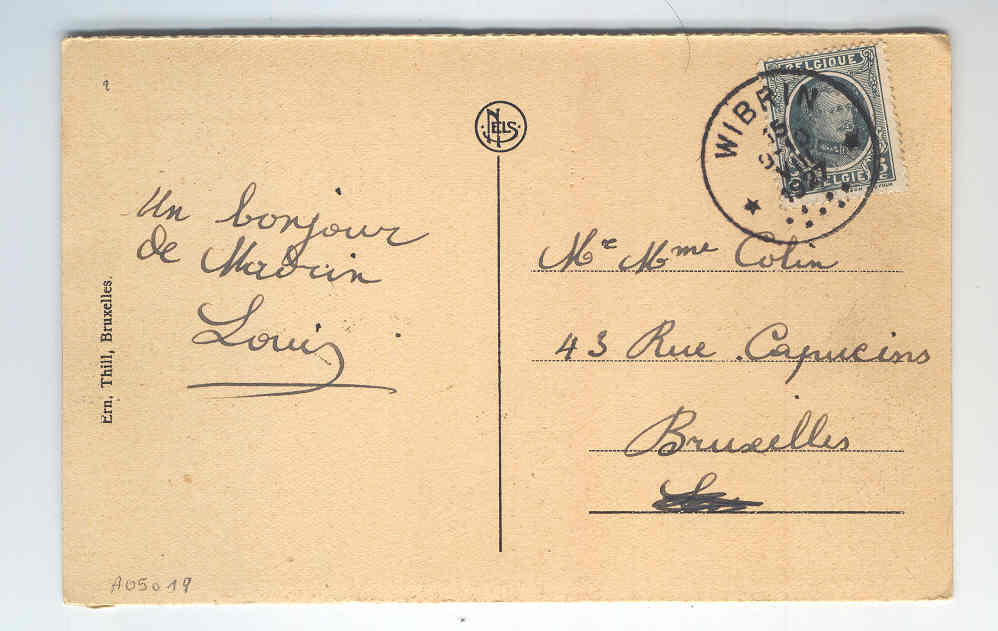 Un bonjour
de Mabrin
Louis
Ern. Thill, Bruxelles.
NELS
BELGIQUE
BELGIE
WIBRIN
15
VIII
1927
Mr Mme Colin
43 Rue Capucins
Bruxelles
A05019